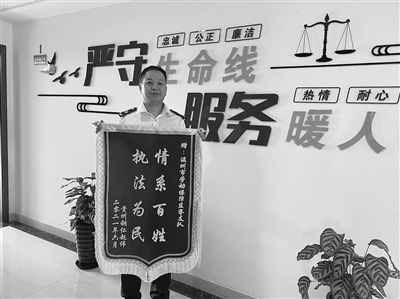 忠诚 公正 廉洁
严守生命线
热情 耐心
服务暖人
赠：温州市劳动保障监察支队
情系百姓
执法为民
贵州铜仁赵伟
二零二一年六月